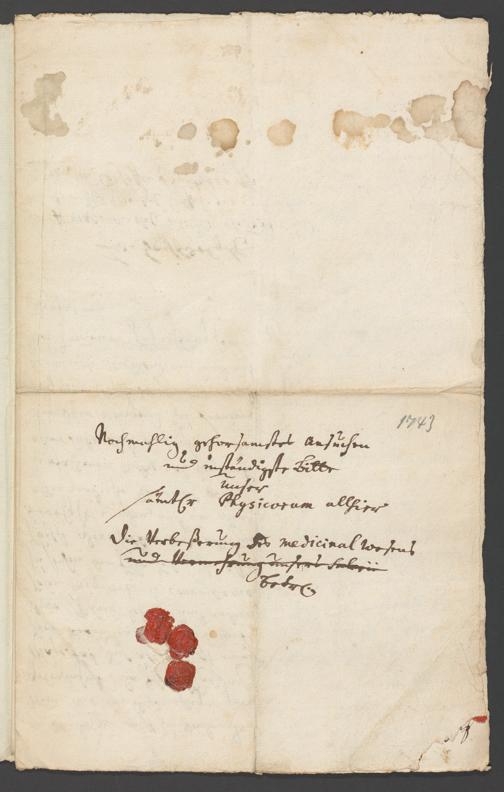 1743
Nochmahlig gehorsamstes Ansuchen
und inständigste Bitte
unser
sämtl. Physicorum allhier
Die Verbeßerung des Medicinal Wesens
und Vermehrung unsers Salarii
betr.